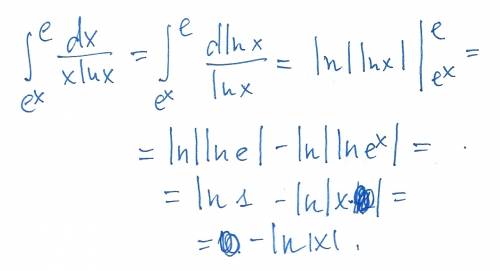 ∫_{e^x}^{e} dx/(x ln x) = ∫_{e^x}^{e} d ln x/ln x = ln|ln x| |_{e^x}^{e} =
= ln|ln e| - ln|ln e^x| =
= ln 1 - ln|x| =
= 0 - ln|x|.